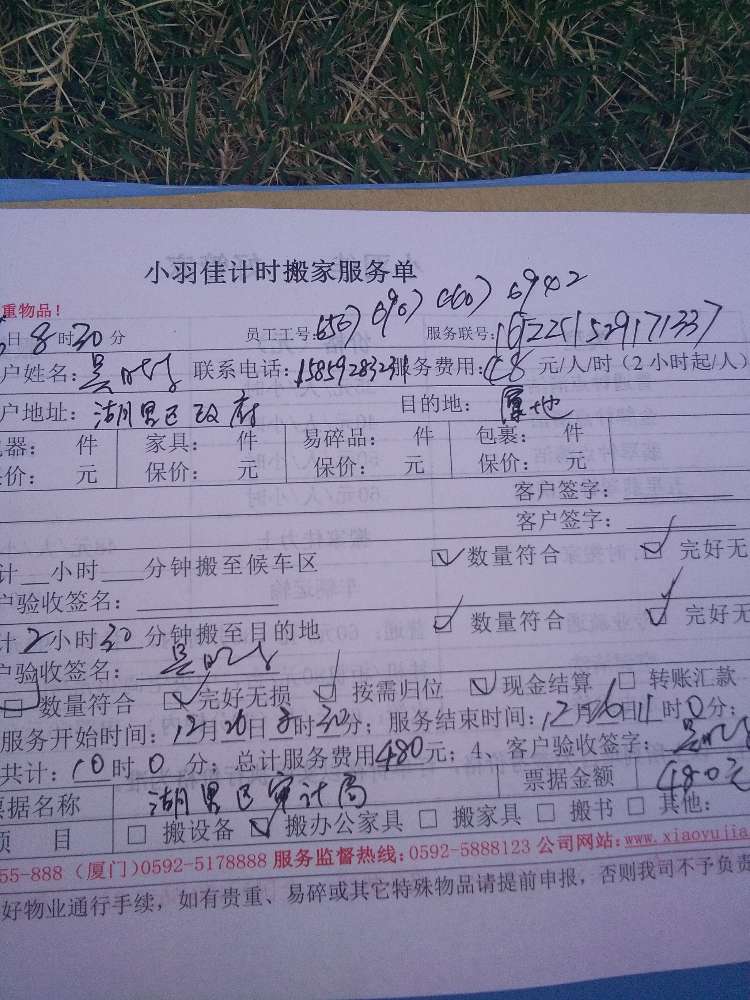 小羽佳计时搬家服务单
重物品！
日8时30分 员工工号:6507 6907 6607 6942 服务联号:
户姓名: 联系电话: 服务费用:48 元/人/时（2小时起/人）
户地址: 湖里区政府 目的地: 原地
器: 件 家具: 件 易碎品: 件 包裹: 件
价: 元 保价: 元 保价: 元 保价: 元
客户签字:
客户签字:
计 小时 分钟搬至候车区 ☑数量符合 ☑完好无
户验收签名:
计2小时30分钟搬至目的地 ☑数量符合 ☑完好无
户验收签名:
☑数量符合 ☑完好无损 ☑按需归位 ☑现金结算 □转账汇款
服务开始时间:12月26日8时30分; 服务结束时间:12月26日11时0分;
共计:10时0分; 总计服务费用480元; 4、客户验收签字:
票据名称 湖里区审计局 票据金额 480元
项 目 □搬设备 ☑搬办公家具 □搬家具 □搬书 □其他:
55-888 (厦门)0592-5178888 服务监督热线:0592-5888123 公司网站:www.xiaoyujia
好物业通行手续，如有贵重、易碎或其它特殊物品请提前申报，否则我司不予负责